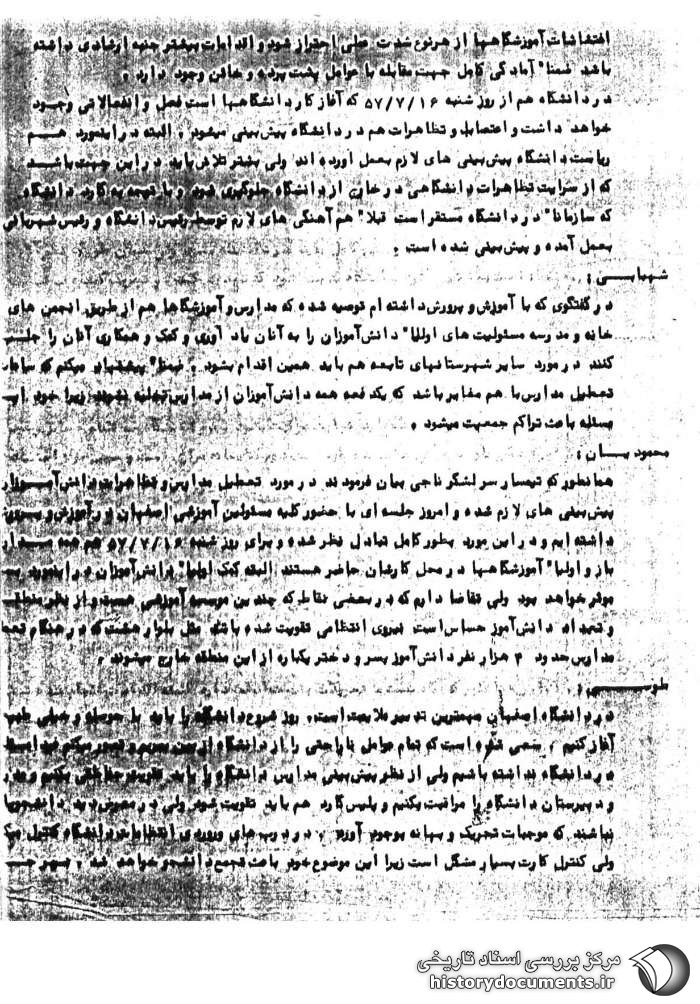 اغتشاشات آموزشگاهها از هر نوع شدت عملی احتراز شود و اقدامات بیشتر جنبه ارشادی داشته
باشد ضمنا" آمادگی کامل جهت مقابله با عوامل پشت پرده و خائن وجود دارد .
در دانشگاه هم از روز شنبه ۵۷/۷/۱۶ که آغاز کار دانشگاهها است فعل و انفعالاتی وجـود
خواهد داشت و اعتصاب و تظاهرات هم در دانشگاه پیش‌بینی میشود . البته در اینمورد هــم
ریاست دانشگاه پیش‌بینی های لازم بعمل آورده اند ولی بیشتر تلاش باید در این جهت باشــد
که از سرایت تظاهرات دانشگاهی در خارج از دانشگاه جلوگیری شود و با توجه به گارد دانشگاه
که سازمانا" در دانشگاه مستقر است قبلا" هم آهنگی های لازم توسط رئیس دانشگاه و رئیس شهربانی
بعمل آمده و پیش‌بینی شده است .
شهبابـــی :
در گفتگوی که با آموزش و پرورش داشته ام توصیه شده که مدارس و آموزشگاها هم از طریق انجمن های
خانه و مدرسه مسئولیت های اولیا" دانش‌آموزان را به آنان یاد آوری و کمک و همکاری آنان را جلــب
کنند در مورد سایر شهرستانهای تابعه هم باید همین اقدام بشود . ضمنا" پیشنهاد میکنم که ساعات
تعطیل مدارس با هم مغایر باشد که یکدفعه همه دانش‌آموزان از مدارس تخلیه نشوند زیرا خود این
مسئله باعث تراکم جمعیت میشود .
محمود بـــان :
همانطور که تیمسار سرلشگر ناجی بیان فرمودند در مورد تعطیل مدارس و تظاهرات دانش‌آمــوزان
پیش‌بینی های لازم شده و امروز جلسه ای با حضور کلیه مسئولین آموزشی اصفهان در آموزش و پــرورش
داشته ایم و در این مورد بطور کامل تبادل نظر شده و برای روز شنبه ۵۷/۷/۱۶ هم همه مــدارس
باز و اولیا" آموزشگاهها در محل کارشان حاضر هستند البته کمک اولیا" دانش‌آموزان در اینمورد
موثر خواهد بود ولی تقاضا داریم که در بعضی نقاط که چندین موسسه آموزشی هست و از نظر
و تعداد دانش‌آموز حساس است نیروی انتظامی تقویت شده باشد مثل بلوار هشت که در هنگام
مدارس حدود ۴ هزار نفر دانش‌آموز پسر و دختر یکباره از این منطقه خارج میشوند .
طوســـی :
در دانشگاه اصفهان مهمترین تدبیر ملایمت است، روز شروع دانشگاه را باید با حوصله و خیلی
آغاز کنیم . سعی شده است که تمام عوامل ناراحتی را از دانشگاه از بین ببریم و تصور میکنم
در دانشگاه نداشته باشیم ولی از نظر پیش‌بینی مدارس دانشگاه را باید تقویت حفاظتی بکنیم
و دبیرستان دانشگاه را مراقبت بکنیم و پلیس گارد هم باید تقویت شود ولی در معرض دید دانشجویان
نباشند که موجبات تحریک و بهانه بوجود آورد . در درب های ورودی انتظامات دانشگاه کنترل
ولی کنترل کارت بسیار مشکل است زیرا این موضوع خود باعث تجمع دانشجو خواهد شد .
مرکز بررسی اسناد تاریخی
historydocuments.ir